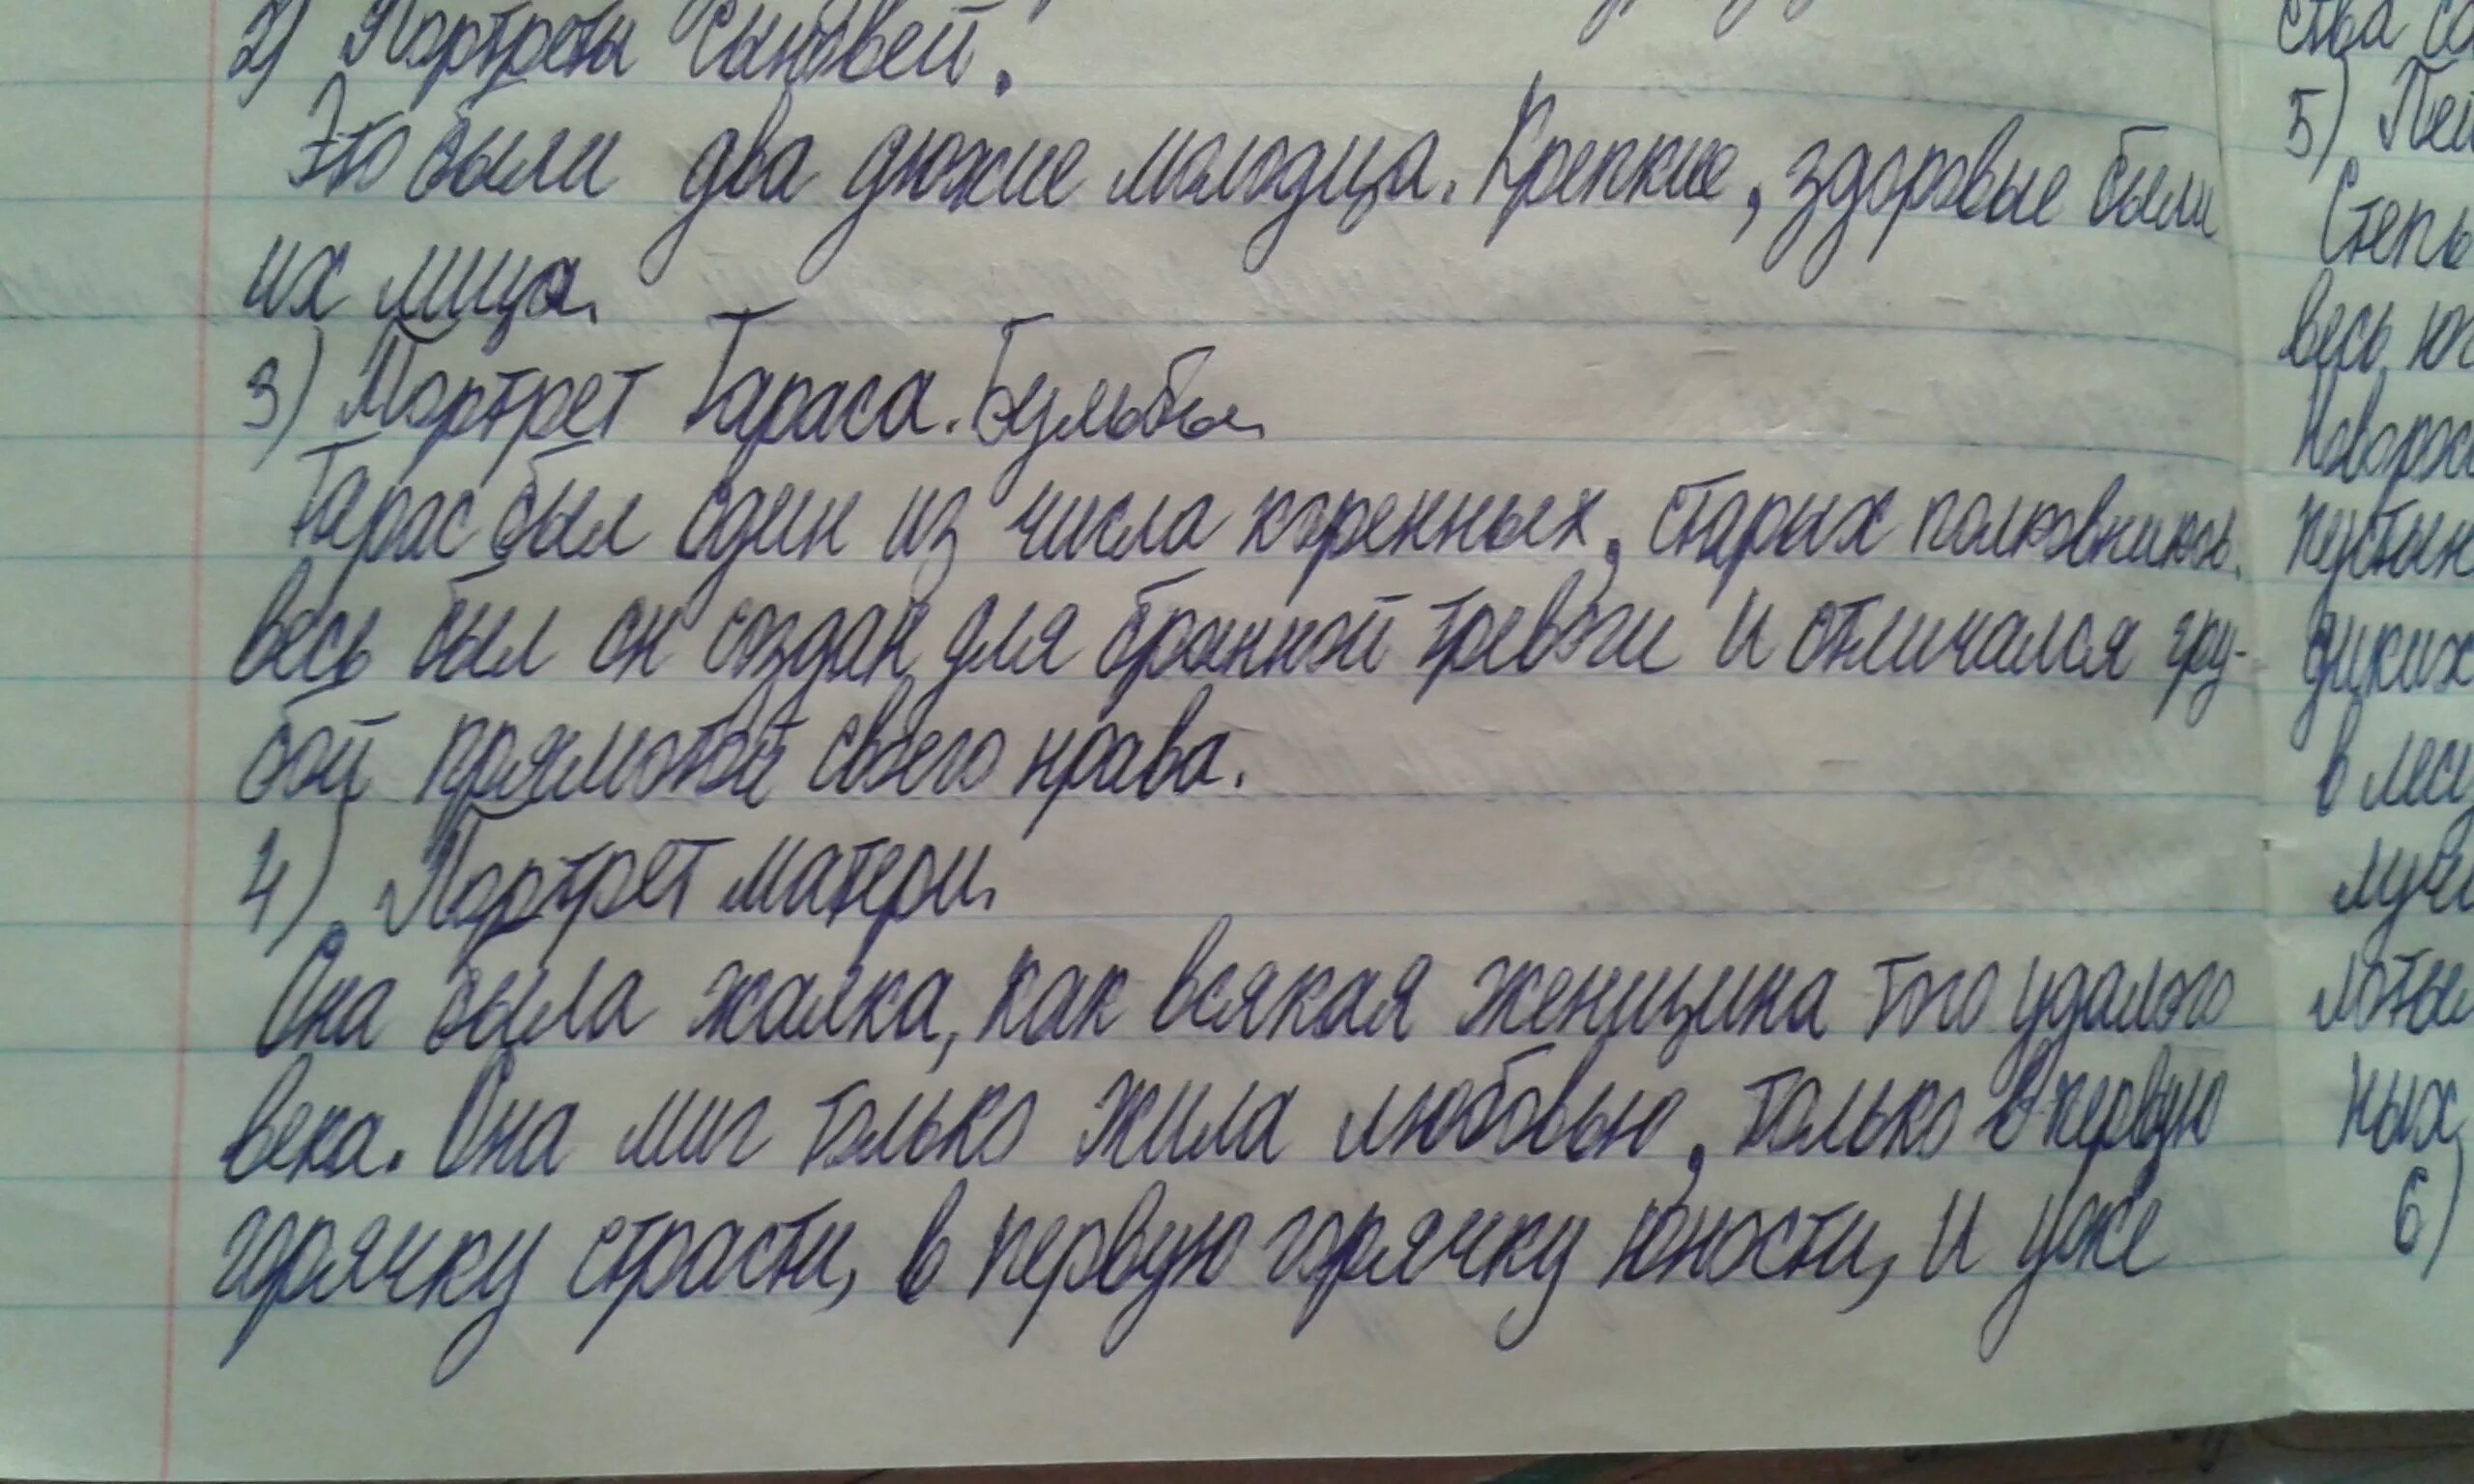 2) Портреты сыновей.
Это были два дюжие молодца. Крепкие, здоровые были
их лица.
3) Портрет Тараса. Бульбы.
Тарас был один из числа коренных, старых полковников.
весь был он создан для бранной тревоги и отличался гру-
бой прямотой своего нрава.
4) Портрет матери.
Она была жалка, как всякая женщина того удалого
века. Она миг только жила любовью, только в первую
горячку страсти, в первую горячку юности, и уже
5)
Степь
весь
в
ных
6)